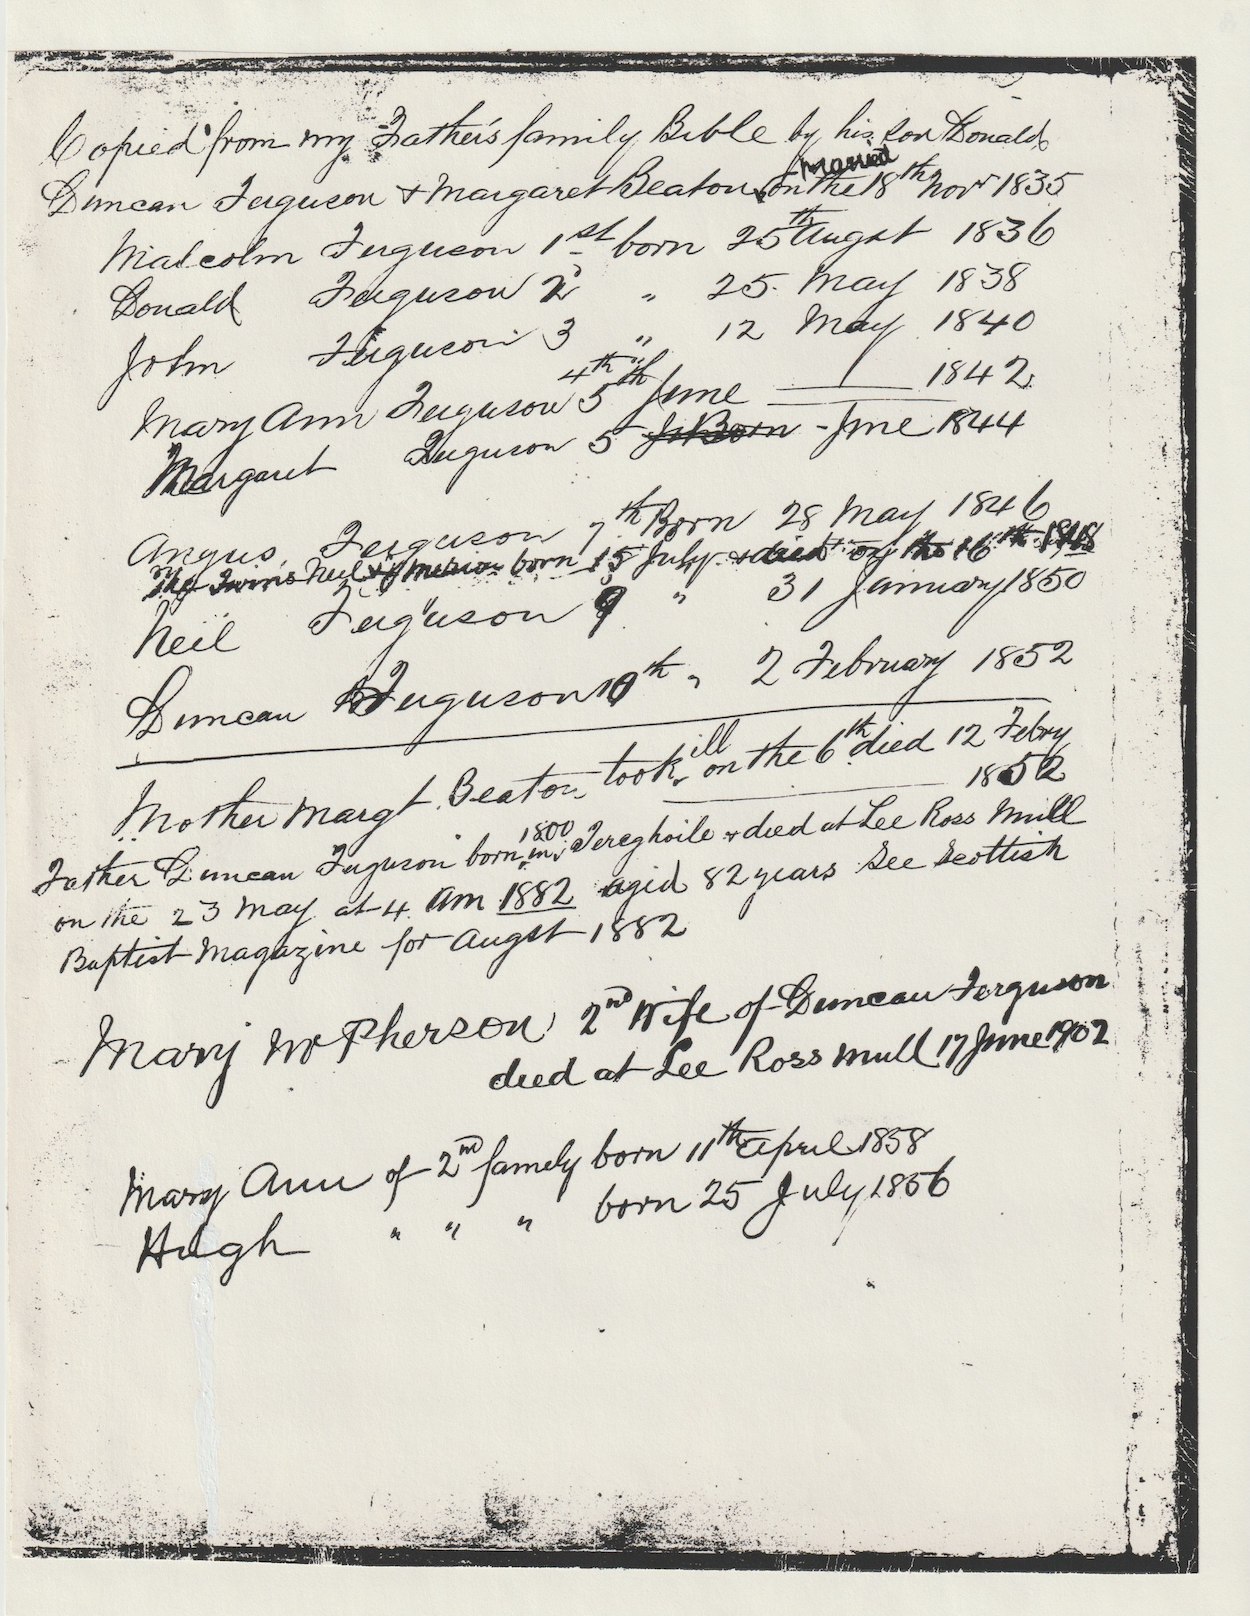 Copied from my Father's family Bible by his son Donald
Duncan Ferguson & Margaret Beaton married on the 18th Novr 1835
Malcolm Ferguson 1st born 25th Augst 1836
Donald Ferguson 2 " 25 May 1838
John Ferguson 3 " 12 May 1840
Mary Ann Ferguson 4th 5th June 1842
Margaret Ferguson 5 Born - June 1844
Angus Ferguson 7th Born 28 May 1846
The Twins Neil & born 15 July & died on the 16th 1848
Neil Ferguson 9 " 31 January 1850
Duncan Ferguson 10th " 2 February 1852
Mother Margt Beaton took ill on the 6th died 12 Febry
1852
Father Duncan Ferguson born 1800 in Tereghoile & died at Lee Ross Mull
on the 23 May at 4 am 1882 agid 82 years See Scottish
Baptist Magazine for Augst 1882
Mary McPherson 2nd Wife of Duncan Ferguson
died at Lee Ross Mull 17 June 1902
Mary Ann of 2nd family born 11th April 1858
Hugh " " " born 25 July 1856